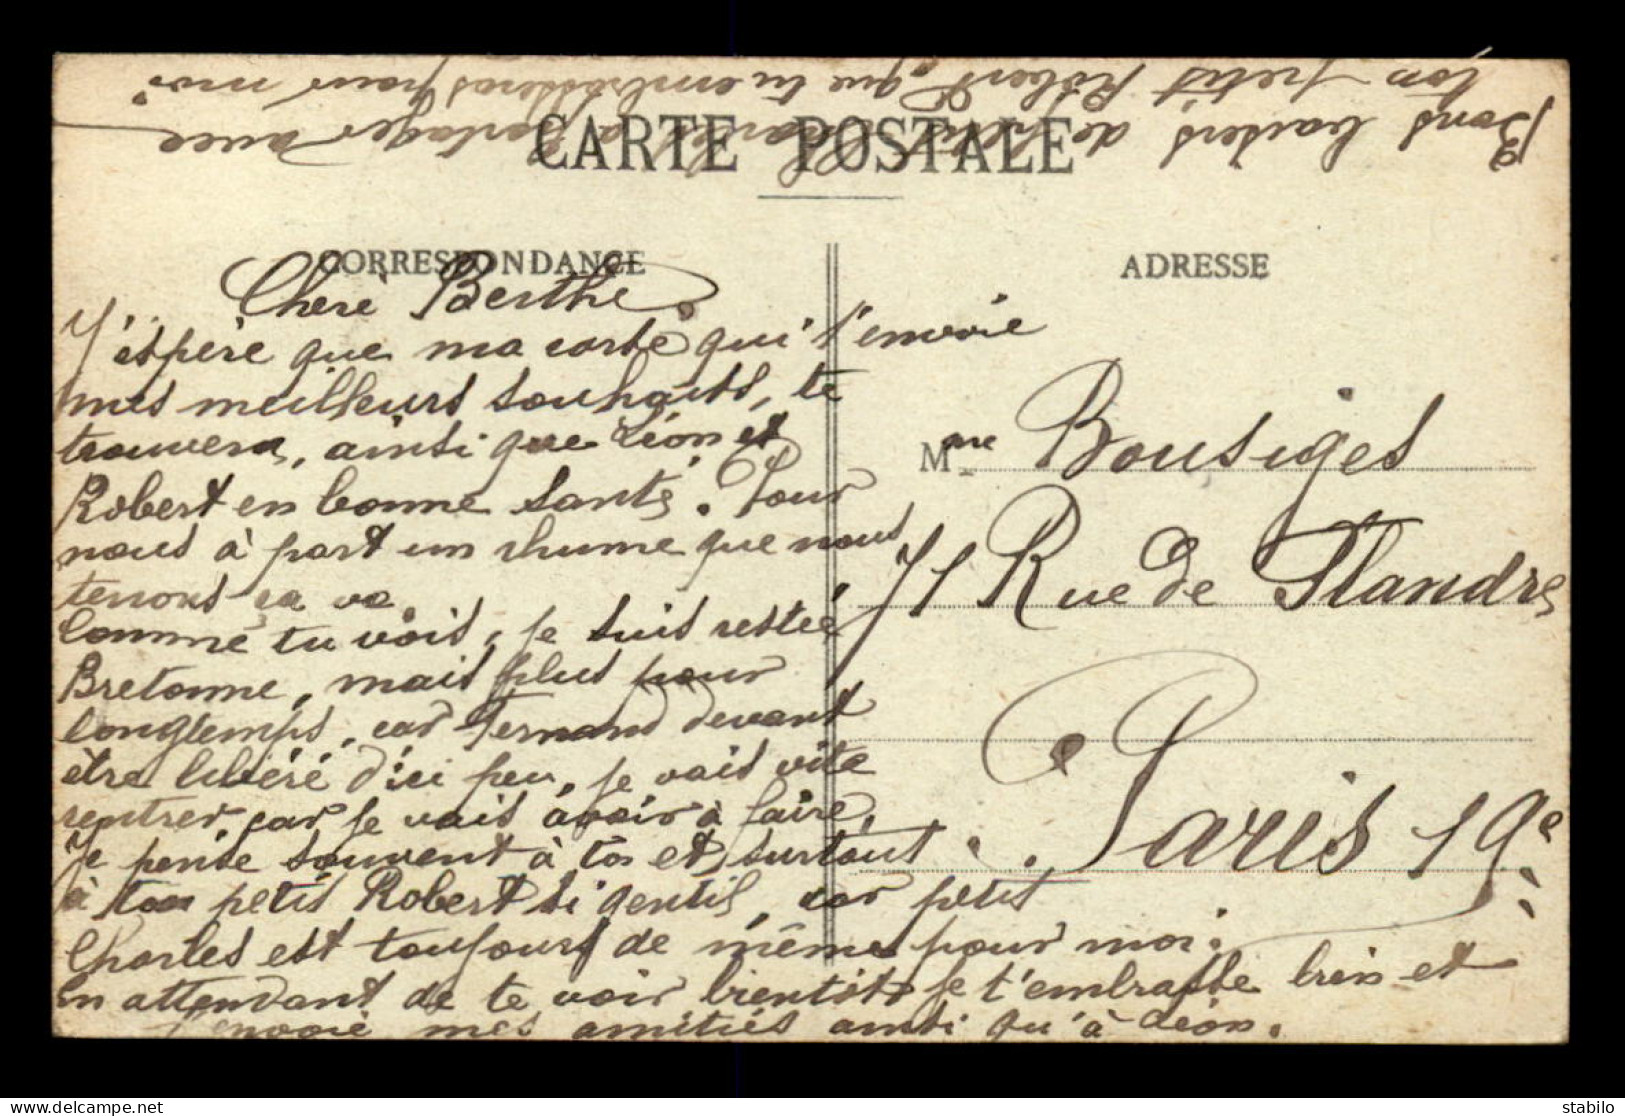 Bons baisers de petit Charles à partager avec
ton petit Robert que tu embrasseras pour moi.
CARTE POSTALE
CORRESPONDANCE
ADRESSE
Chère Berthe.
J'espère que ma carte qui t'envoie
mes meilleurs souhaits, te
trouvera, ainsi que Léon et
Robert en bonne santé. Pour
nous à part un rhume que nous
tenons ça va.
Comme tu vois, je suis restée
Bretonne, mais plus pour
longtemps, car Fernand devant
être libéré d'ici peu, je vais vite
rentrer, car je vais avoir à faire.
Je pense souvent à toi et surtout
à ton petit Robert si gentil, car petit
Charles est toujours de même pour moi.
En attendant de te voir bientôt je t'embrasse bien et
envoie mes amitiés ainsi qu'à Léon.
Mme Bousiges
71 Rue de Flandres
Paris 19e
stabilo